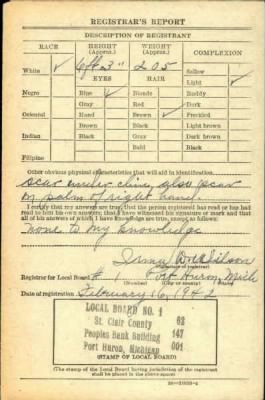 REGISTRAR'S REPORT
DESCRIPTION OF REGISTRANT
RACE HEIGHT (Approx.) WEIGHT (Approx.) COMPLEXION
White ✓ 6ft 3" 205 Sallow
EYES HAIR Light ✓
Negro Blue ✓ Blonde Ruddy
Gray Red Dark
Oriental Hazel Brown ✓ Freckled
Brown Black Light brown
Indian Black Gray Dark brown
Bald Black
Filipino
Other obvious physical characteristics that will aid in identification
scar under chin, also scar
on palm of right hand.
I certify that my answers are true; that the person registered has read or has had
read to him his own answers; that I have witnessed his signature or mark and that
all of his answers of which I have knowledge are true, except as follows:
none to my knowledge
Irma D. Wilson
(Signature of registrar)
Registrar for Local Board # 1 Port Huron, Mich
(Number) (City or county) (State)
Date of registration February 16, 1942
LOCAL BOARD NO. 1
St. Clair County 62
Peoples Bank Building 147
Port Huron, Michigan 001
(STAMP OF LOCAL BOARD)
(The stamp of the Local Board having jurisdiction of the registrant
shall be placed in the above space.)